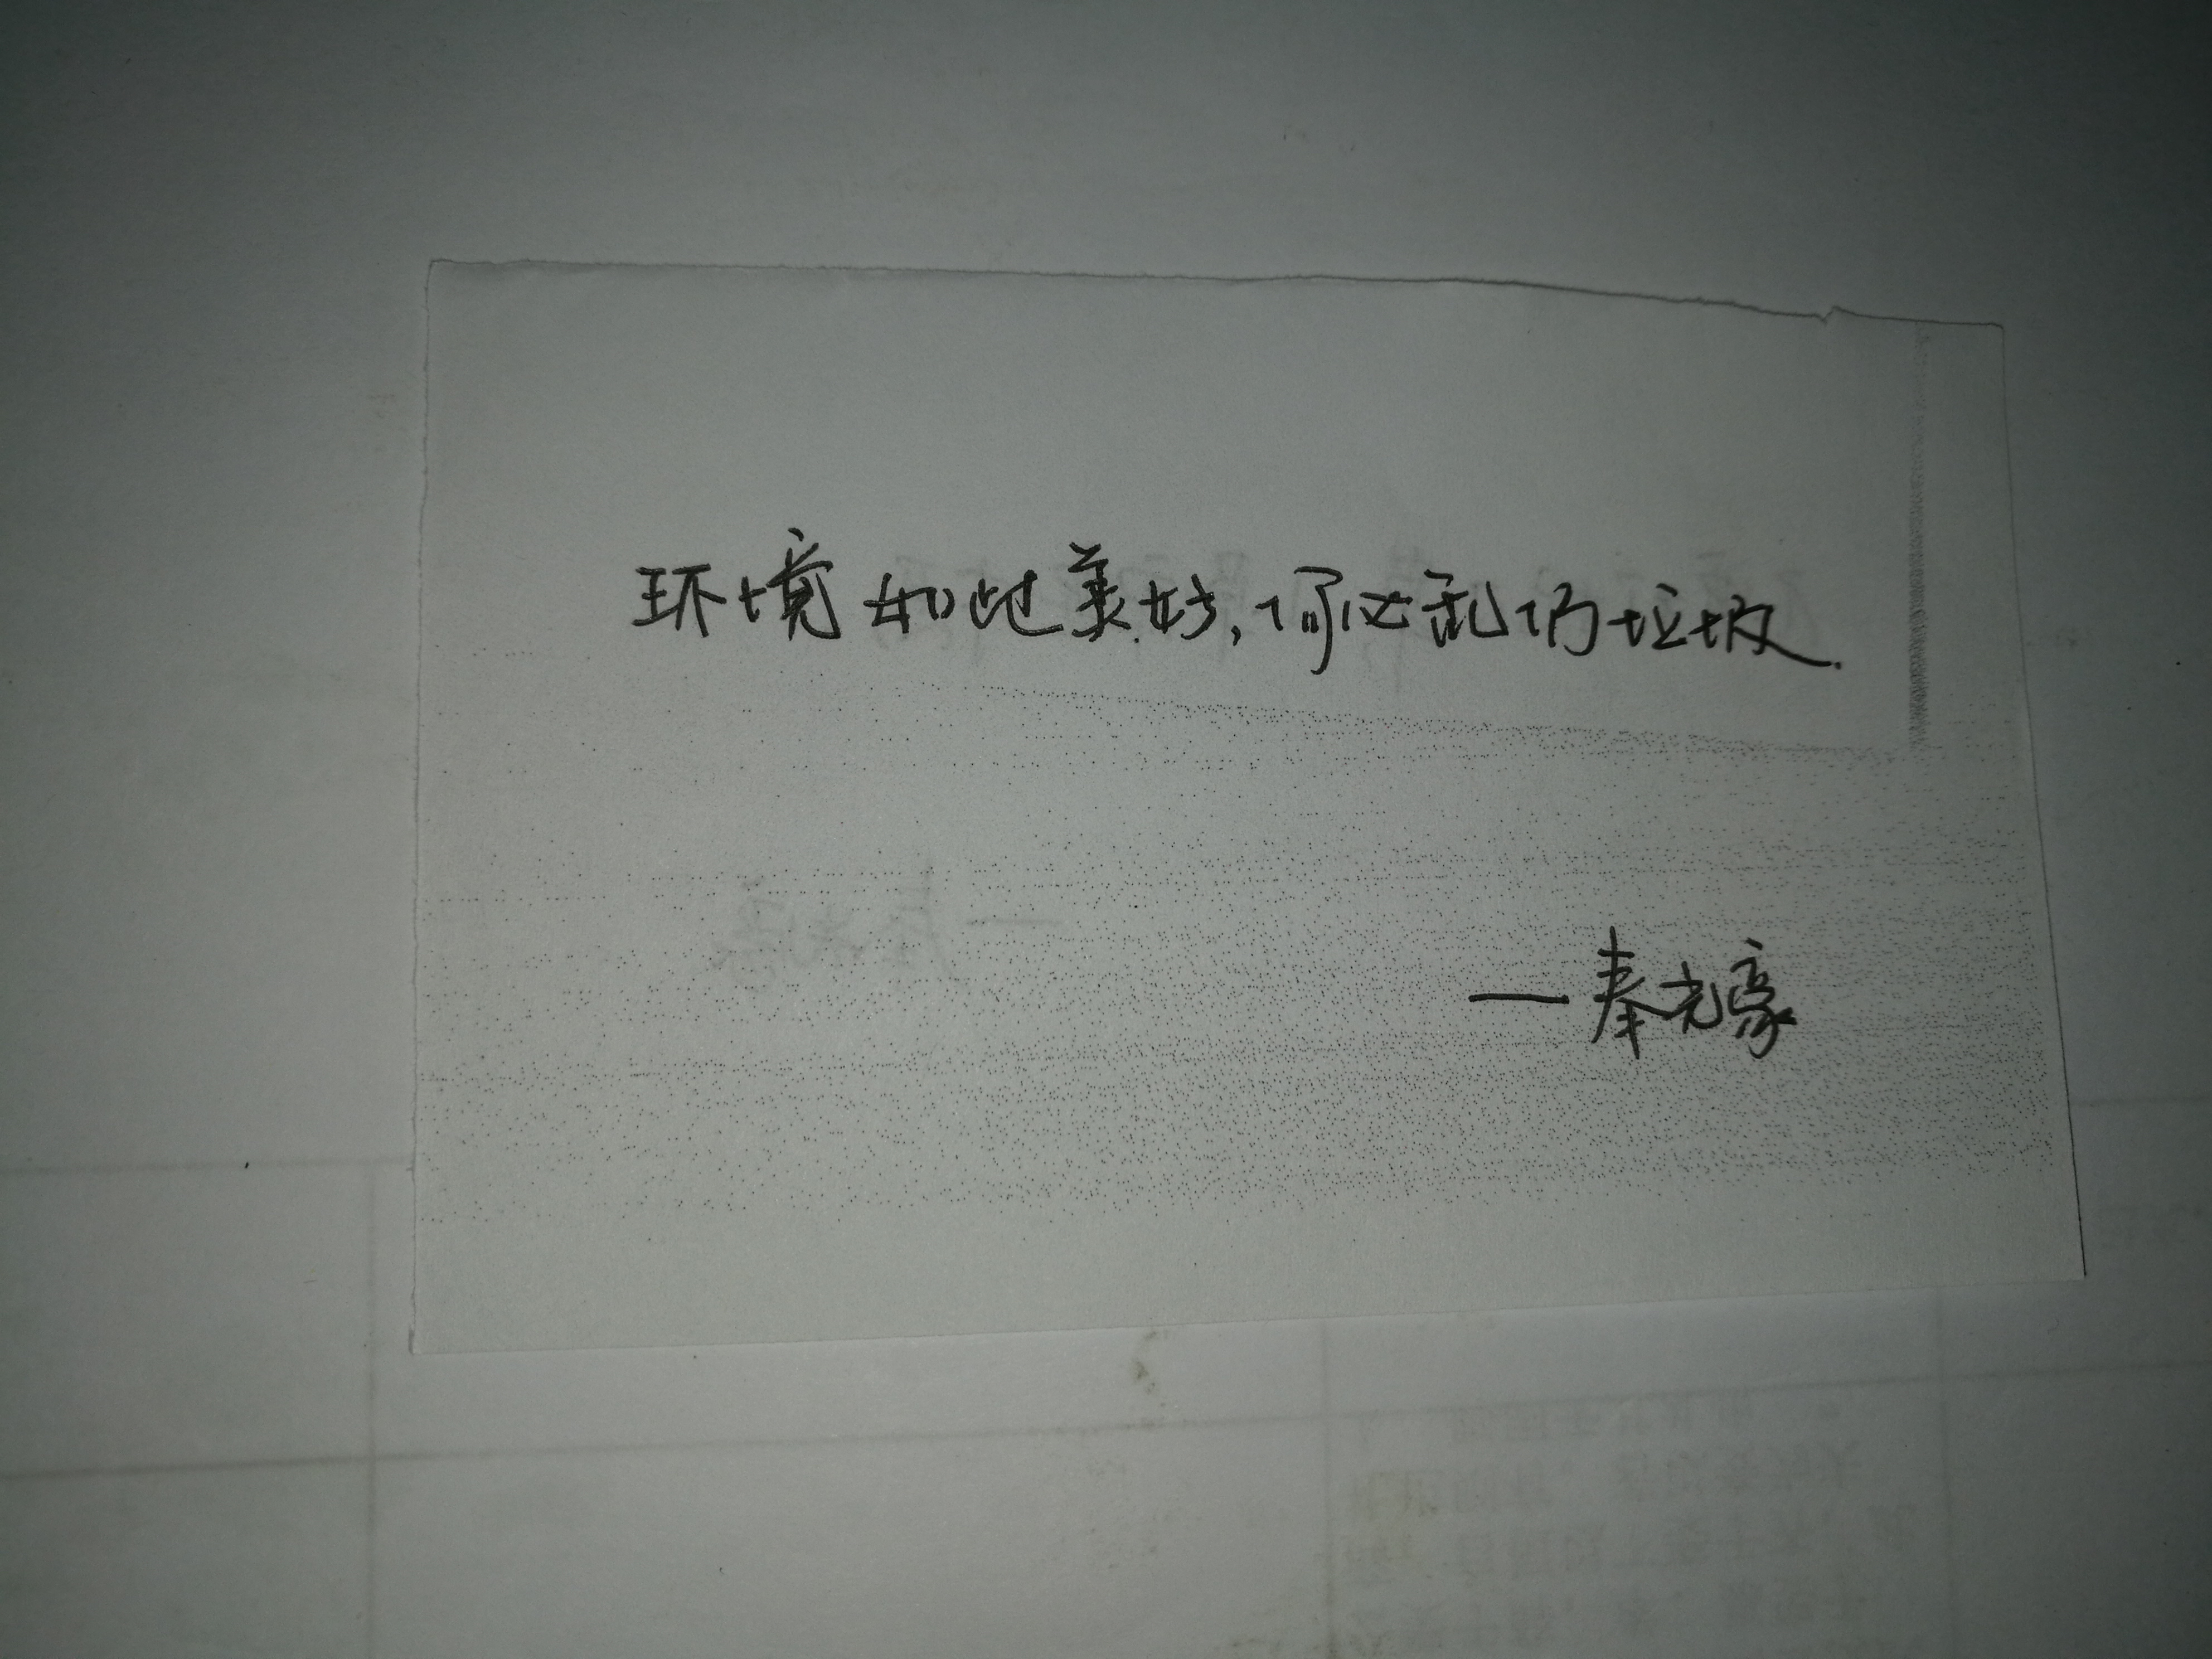 环境如此美好,何必乱扔垃圾.
—秦光豪